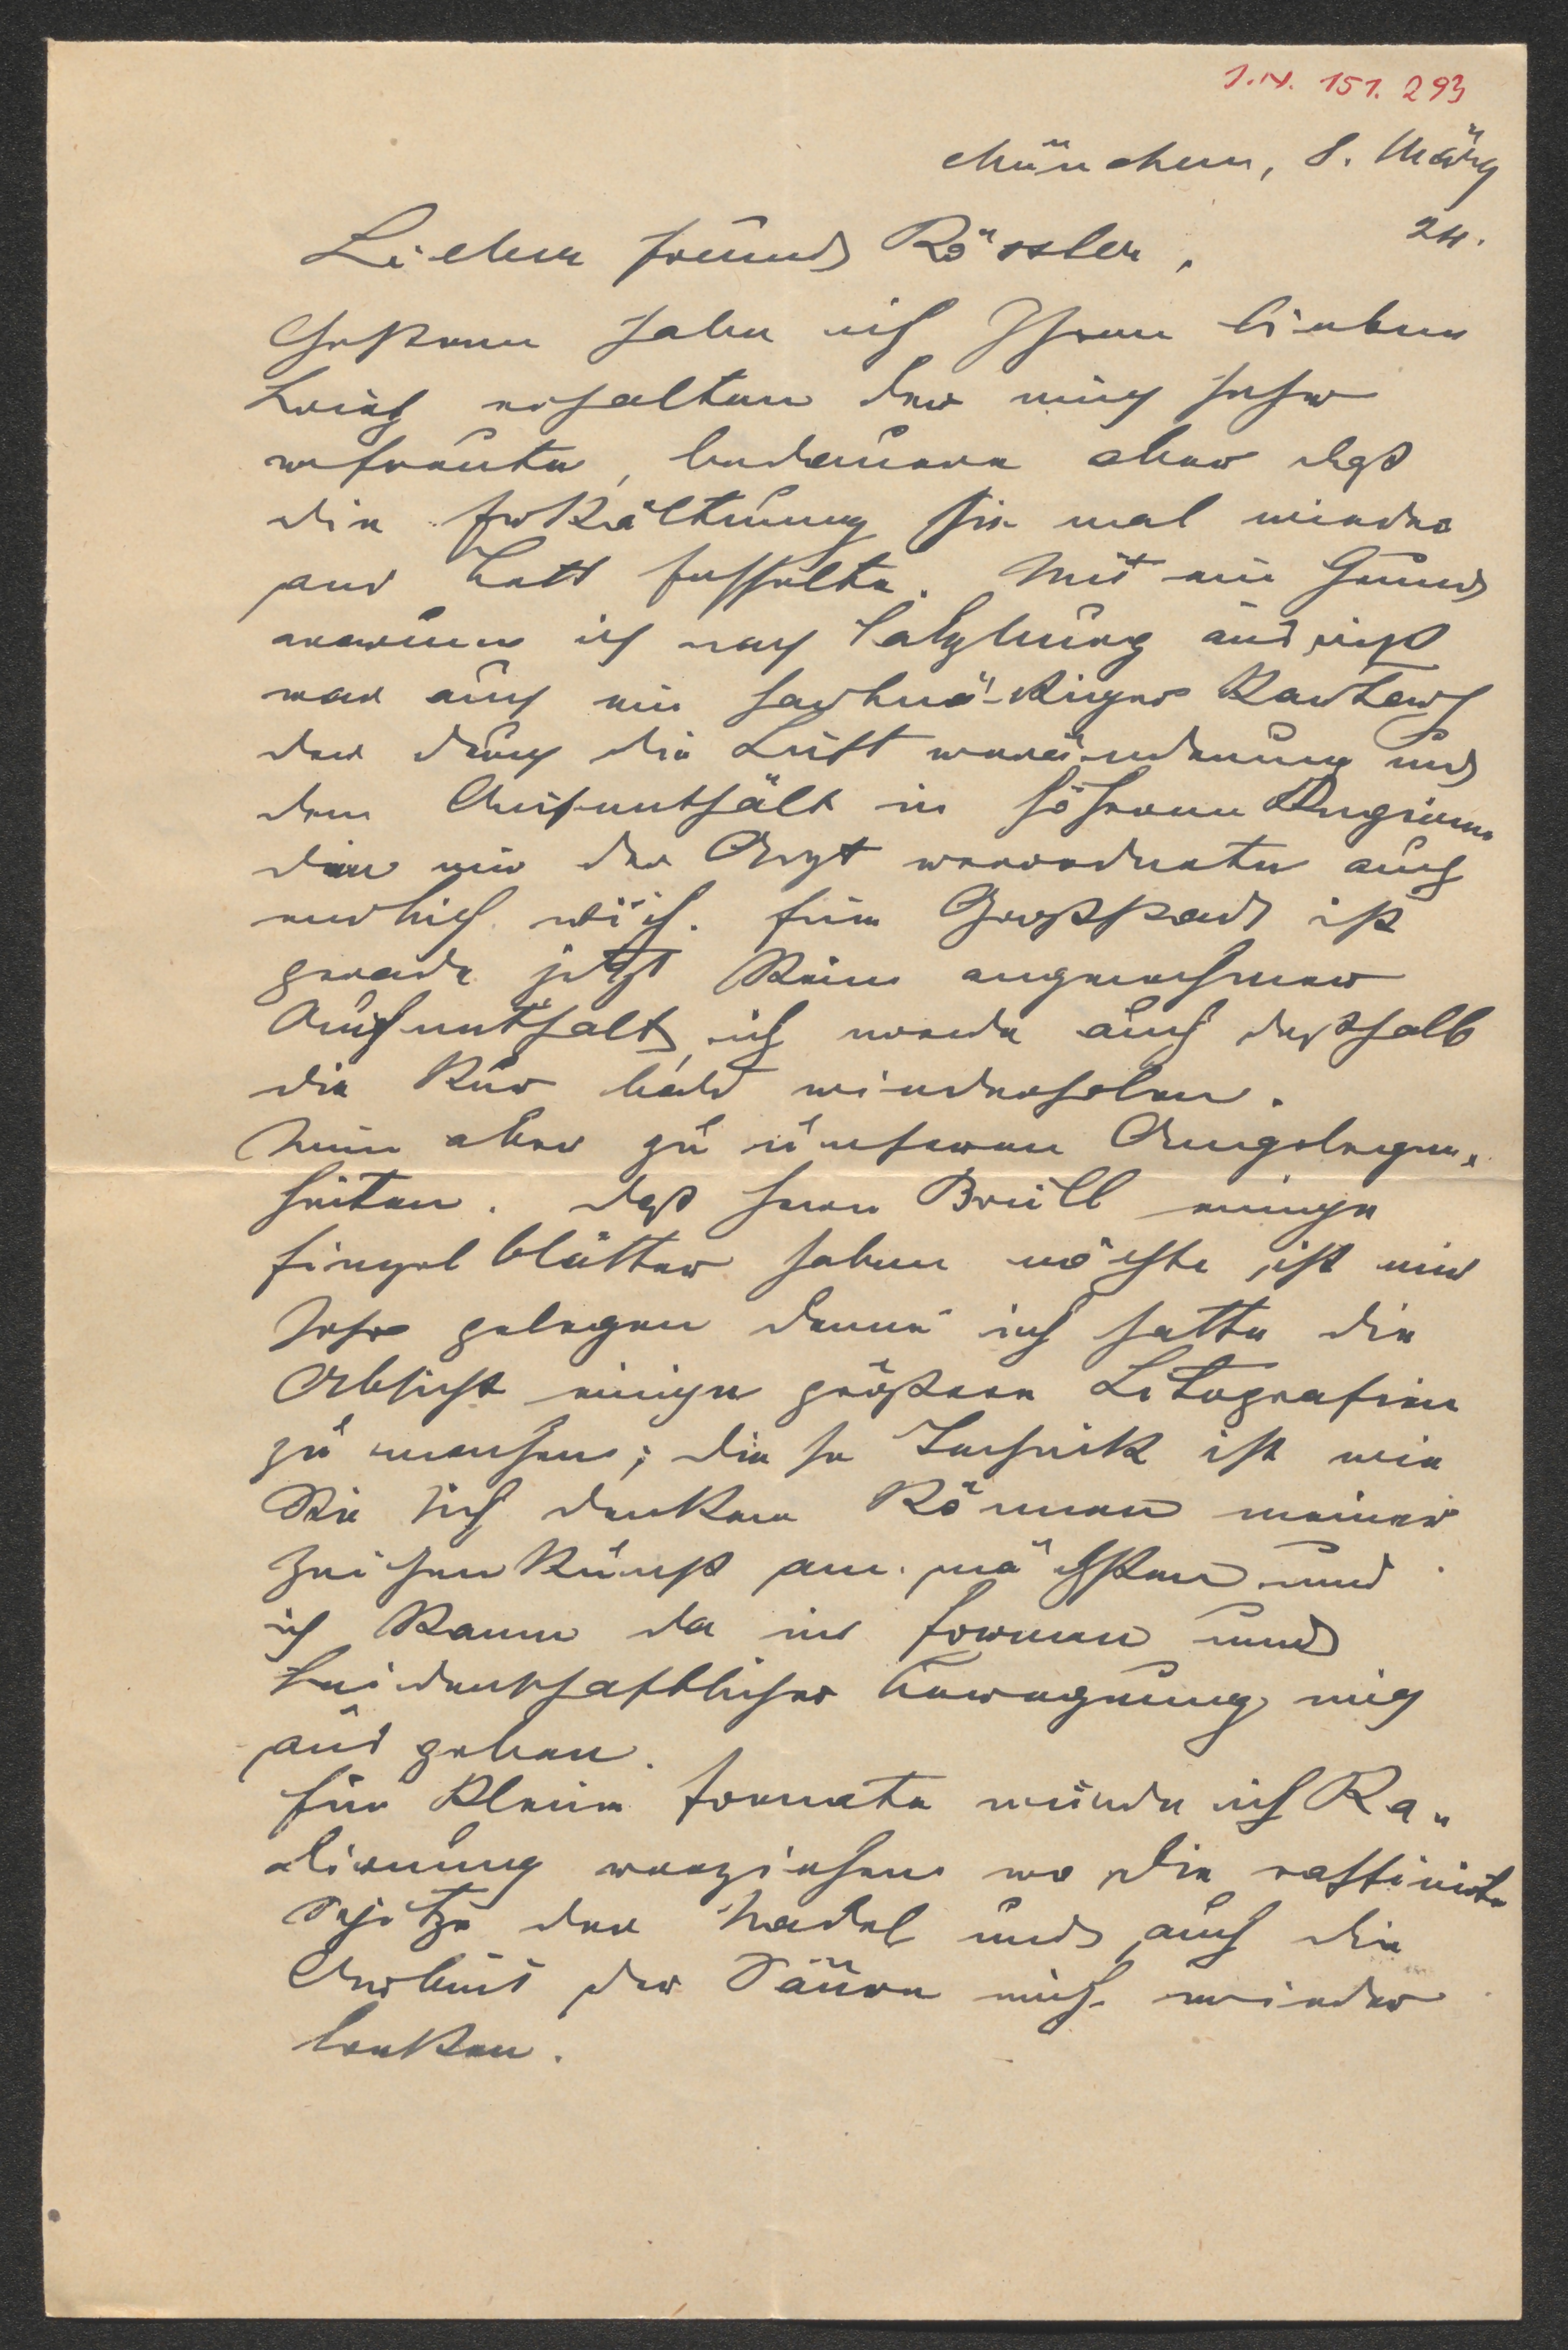 I.N. 151.293
München, 8. März
24.
Lieber Freund Rössler,
Gestern habe ich Ihren lieben
Brief erhalten der mich sehr
erfreute, bedauere aber daß
die Erkältung Sie mal wieder
ans Bett fesselte. Mit ein Grund
warum ich nach Salzburg ausriß
war auch ein hartnäkiger Kartarh
der durch die Luftveränderung und
den Aufenthalt in höheren Regionen
den mir der Arzt verordnete auch
endlich wich. Eine Großstadt ist
gerade jetzt kein angenehmer
Aufenthalt, ich werde auch deßhalb
die Kur bald wiederholen.
Nun aber zu unseren Angelegen-
heiten. Daß Herr Brüll einige
Einzelblätter haben möchte ist mir
sehr gelegen denn ich hatte die
Absicht einige größere Litografien
zu machen; diese Technik ist wie
Sie sich denken können meiner
Zeichenkunst am nächsten und
ich kann da in Formen und
leidenschaftlicher Bewegung mich
ausgeben.
Für kleine Formate würde ich Ra-
dierung vorziehen wo die raffinierte
Spitze der Nadel und auch die
Arbeit der Säure mich wieder
loken.